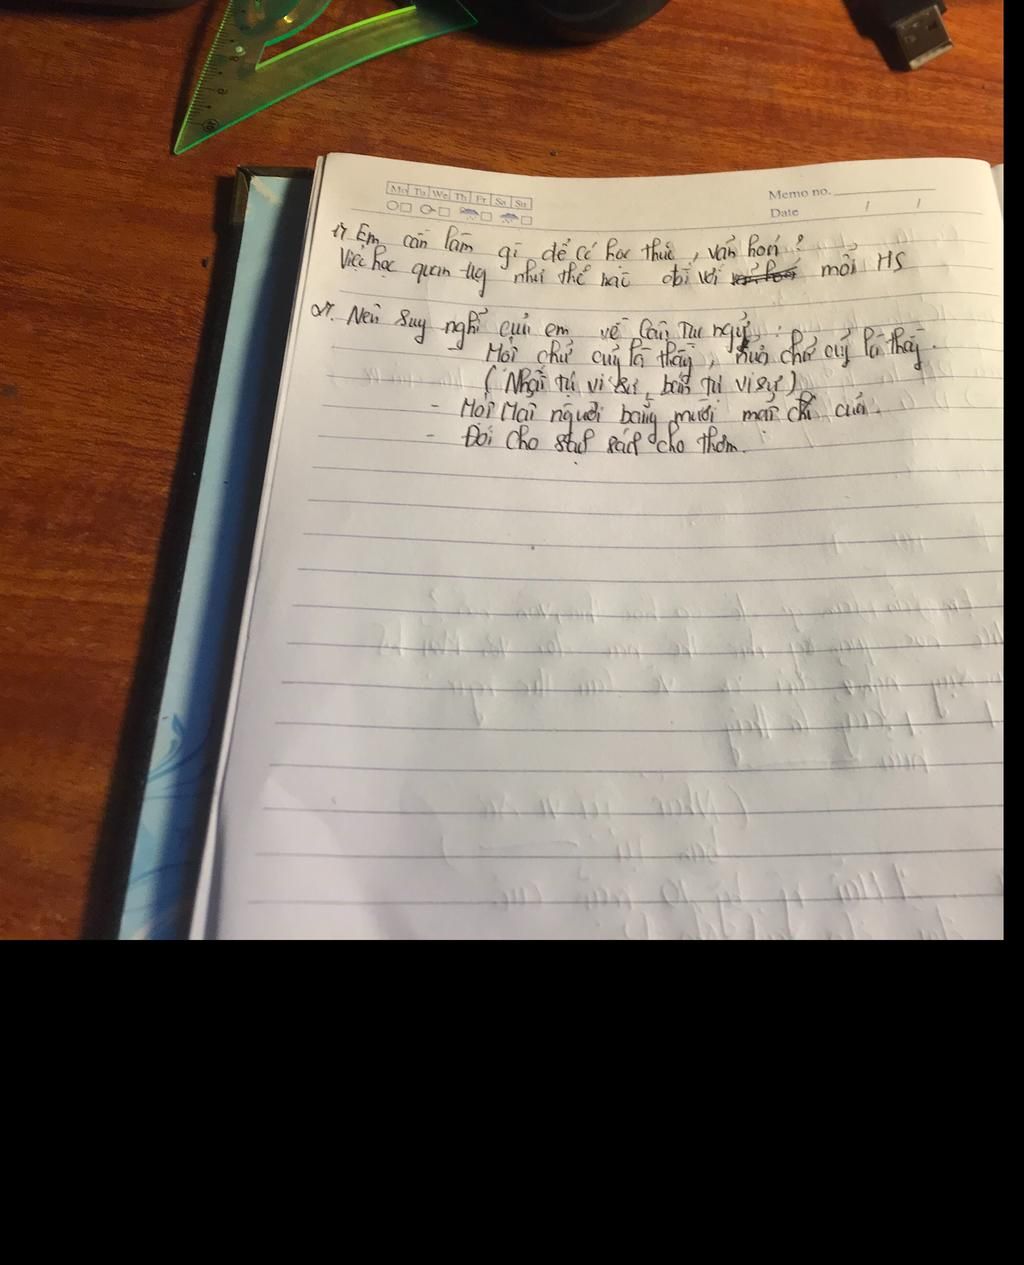 Mo Tu We Th Fr Sa Su
Memo no.
Date / /
1, Em cần làm gì để có học thức, văn hoá?
Việc học quan tṛg như thế nào đối với mỗi HS
2. Nêu suy nghĩ của em về câu Tục ngữ:
Một chữ cũng là thầy, nửa chữ cũng là thầy.
(Nhất tự vi sư, bán tự vi sư)
- Một Mặt người bằng mười mặt của.
- Đói cho sạch rách cho thơm.